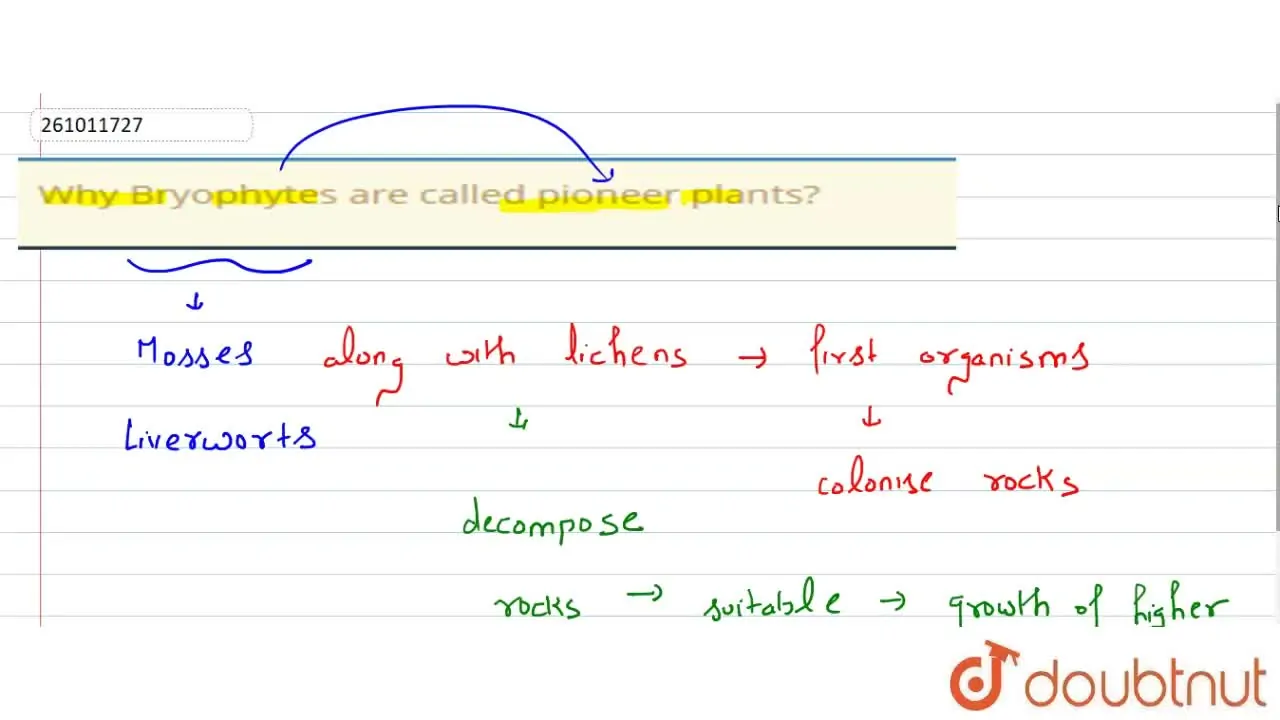 261011727
Why Bryophytes are called pioneer plants?
Mosses along with lichens → first organisms
↓
Liverworts
colonise rocks
decompose
rocks → suitable → growth of higher
doubtnut